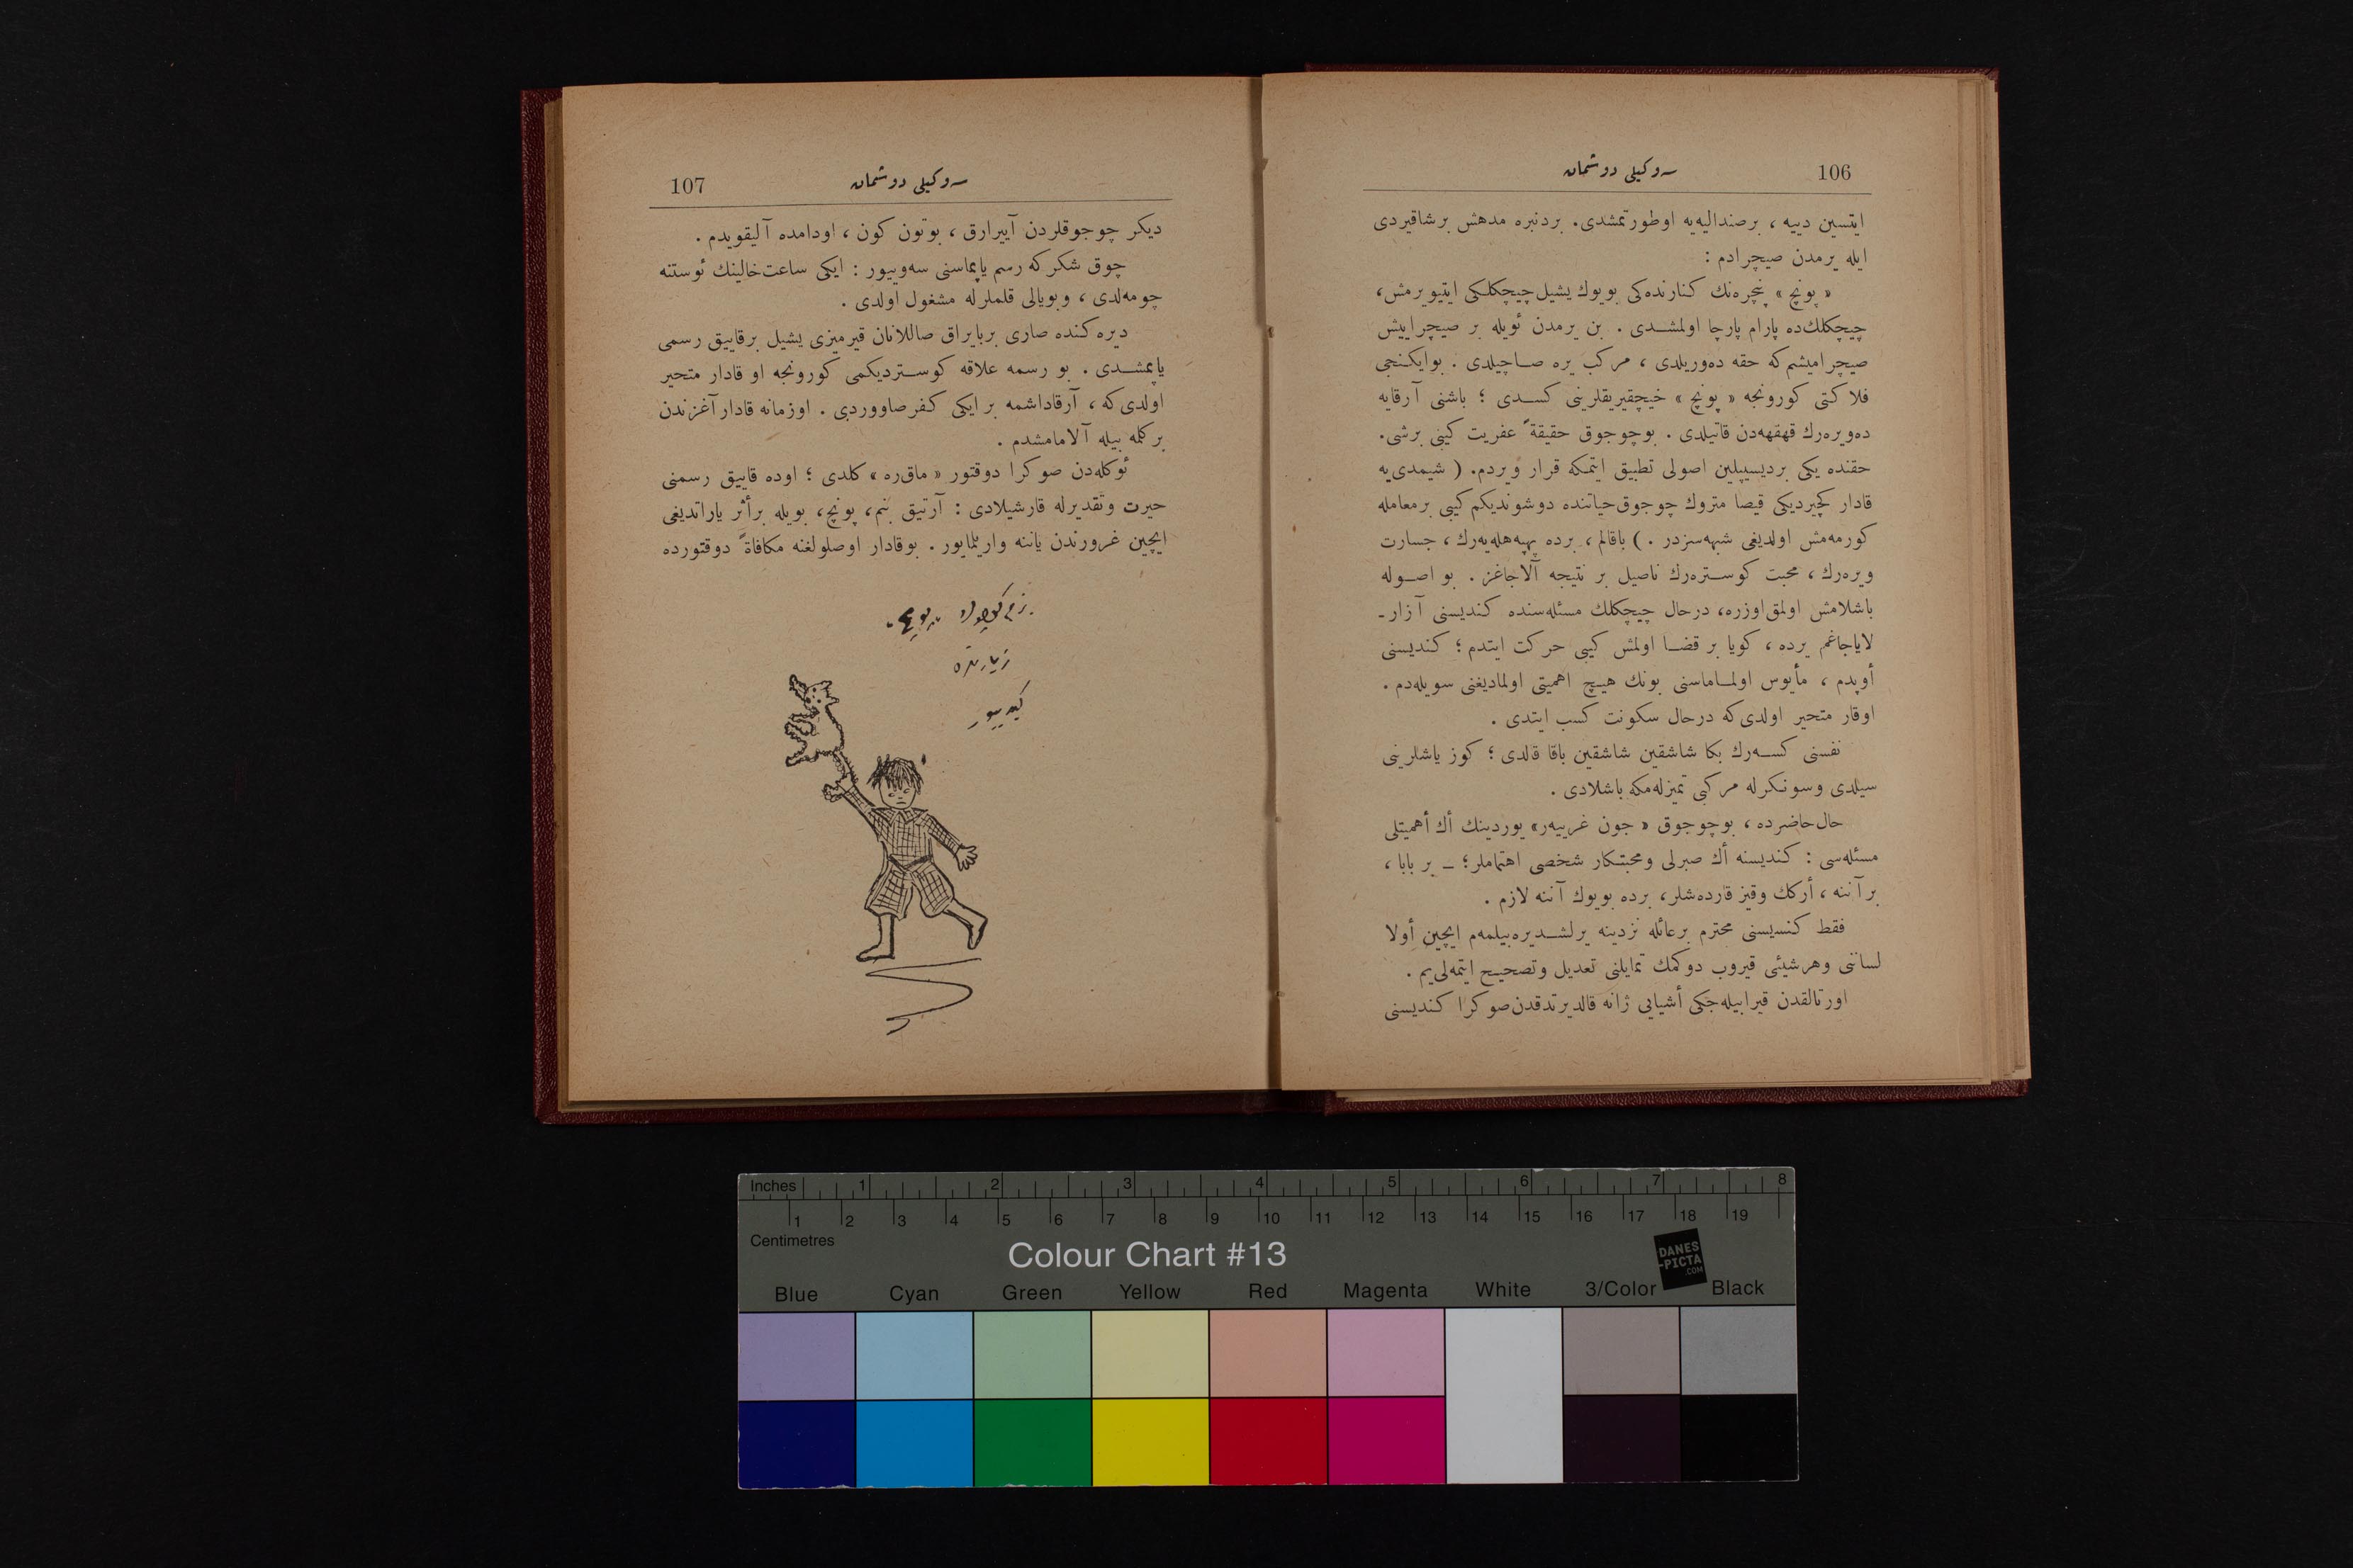 106
سه‌وكيلى دوشمان
ايتسين دييه ، برصنداليه‌يه اوطورتمشدى. بردنبره مدهش برشاقيردى
ايله يرمدن صيچرادم :
« پونچ » پنجره‌نك كنارنده‌كى بويوك يشيل چيچكلكى ايتيويرمش،
چيچكلك‌ده پارام پارچا اولمشدى . بن يرمدن ئويله بر صيچراييش
صيچراميشم كه حقه ده‌وريلدى ، مركب يره صاچيلدى . بوايكنجى
فلاكتى كورونجه « پونچ » خيچقيريقلرينى كسدى ؛ باشنى آرقايه
ده‌ويره‌رك قهقهه‌دن قاتيلدى . بوچوجوق حقيقةً عفريت كيبى برشى.
حقنده يكى برديسيپلين اصولى تطبيق ايتمكه قرار ويردم. ( شيمدى‌يه
قادار كچيرديكى قيصا متروك چوجوق حياتنده دوشونديكم كيبى برمعامله
كورمه‌مش اولديغى شبهه‌سزدر . ) باقالم ، برده پهپه‌هله‌يه‌رك ، جسارت
ويره‌رك ، محبت كوستره‌رك ناصيل بر نتيجه آلاجاغز . بو اصوله
باشلامش اولمق‌اوزره، درحال چيچكلك مسئله‌سنده كنديسنى آزار-
لاياجاغم يرده ، كويا بر قضا اولمش كيبى حركت ايتدم ؛ كنديسنى
أوپدم ، مأيوس اولماماسنى بونك هيچ اهميتى اولماديغنى سويله‌دم .
اوقار متحير اولدى‌كه درحال سكونت كسب ايتدى .
نفسنى كسه‌رك بكا شاشقين شاشقين باقا قالدى ؛ كوز ياشلرينى
سيلدى وسونكرله مركبى تميزله‌مكه باشلادى .
حال‌حاضرده ، بوچوجوق « جون غرييه‌ر» يوردينك أك أهميتلى
مسئله‌سى : كنديسنه أك صبرلى ومحبتكار شخصى اهتماملر؛ ـ بر بابا ،
برآننه ، أركك وقيز قارده‌شلر، برده بويوك آننه لازم .
فقط كنسيسنى محترم برعائله نزدينه يرلشديره‌بيلمه‌م ايچين أولا
لساننى وهرشيئى قيروب دوكمك تمايلنى تعديل وتصحيح ايتمه‌لى‌يم .
اورتالقدن قيرابيله‌جكى أشيايى ژانه قالديرتدقدن‌صوكرا كنديسنى
107
سه‌وكيلى دوشمان
ديكر چوجوقلردن آييرارق ، بوتون كون ، اودامده آليقويدم .
چوق شكركه رسم ياپماسنى سه‌وييور : ايكى ساعت‌خالينك ئوستنه
چومه‌لدى ، وبويالى قلملرله مشغول اولدى .
ديره‌كنده صارى بربايراق صاللانان قيرميزى يشيل برقاييق رسمى
ياپمشدى . بو رسمه علاقه كوسترديكمى كورونجه او قادار متحير
اولدى‌كه ، آرقاداشمه بر ايكى كفر صاووردى . اوزمانه قادار آغزندن
بركلمه بيله آلامامشدم .
ئوكله‌دن صوكرا دوقتور « ماق‌ره » كلدى ؛ اوده قاييق رسمنى
حيرت وتقديرله قارشيلادى : آرتيق بنم، پونچ، بويله برأثر ياراتديغى
ايچين غرورندن ياننه واريلمايور . بوقادار اوصلولغنه مكافاةً دوقتورده
بزم كوچوك «پونچ»
زيارته
كيدييور
Inches 1 2 3 4 5 6 7 8
1 2 3 4 5 6 7 8 9 10 11 12 13 14 15 16 17 18 19
Centimetres
Colour Chart #13
DANES
-PICTA
.COM
Blue Cyan Green Yellow Red Magenta White 3/Color Black